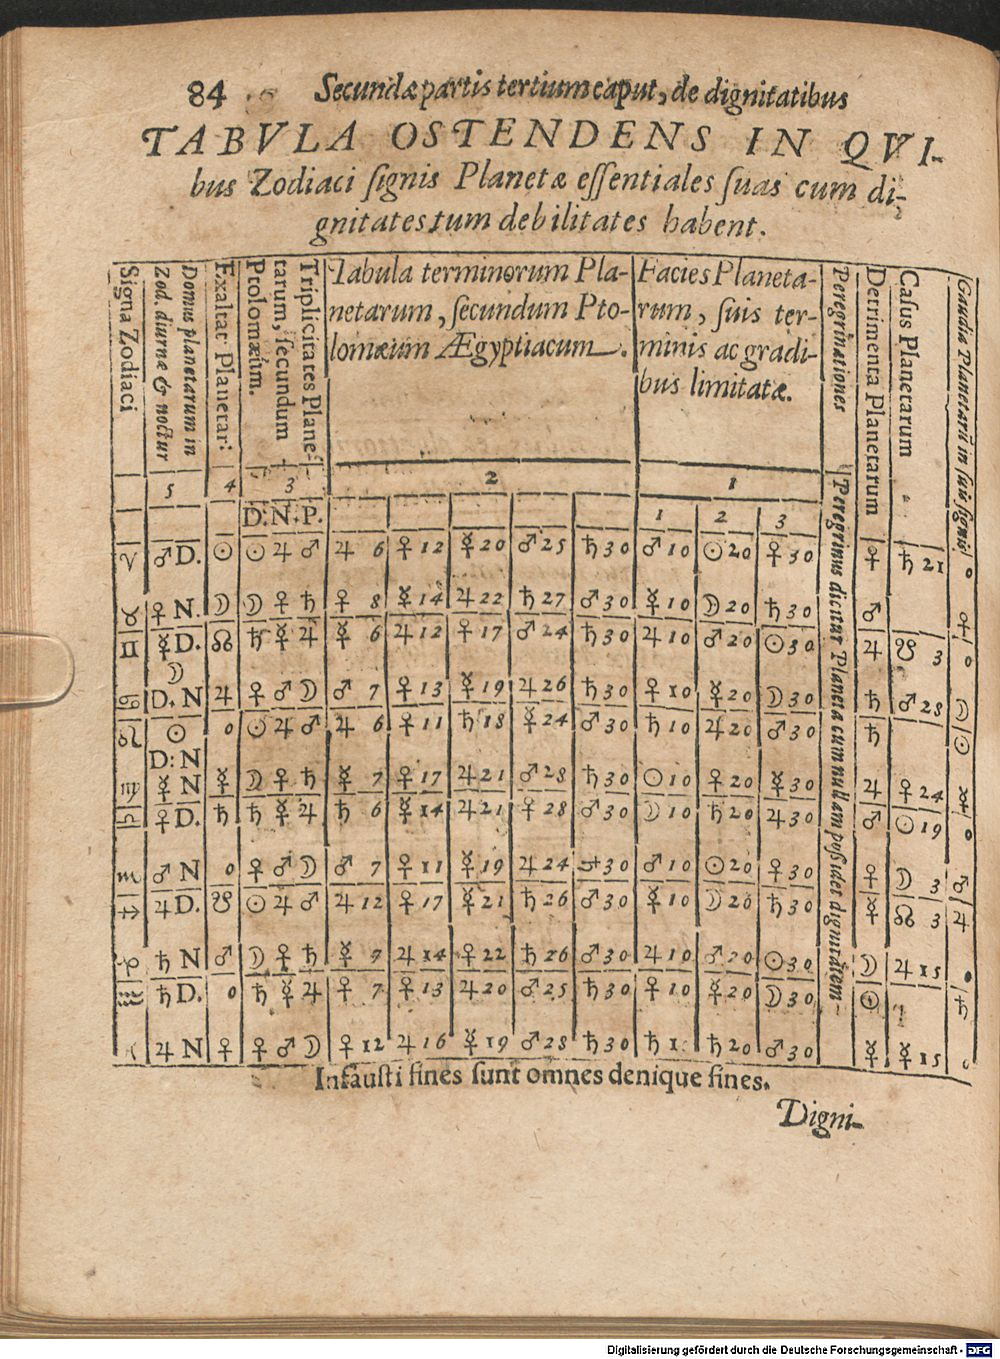 84 Secundæ partis tertium caput, de dignitatibus
TABVLA OSTENDENS IN QVI-
bus Zodiaci ſignis Planetæ eſſentiales ſuas cum di-
gnitates tum debilitates habent.
Signa Zodiaci
Domus planetarum in
Zod. diurnæ & noctur
Exaltat: Planetar:
Triplicitates Plane-
tarum, ſecundum
Ptolomæum.
Tabula terminorum Pla-
netarum, ſecundum Pto-
lomæium Ægyptiacum.
Facies Planeta-
rum, ſuis ter-
minis ac gradi-
bus limitatæ.
Peregrinationes
Detrimenta Planetarum
Casus Planetarum
Gaudia Planetarū in ſuis ſignis
5 4 3 2 1
D: N. P. 1 2 3
Peregrinus dicitur Planeta cum nullam poſſidet dignitatem
♈ ♂ D. ☉ ☉ ♃ ♂ ♃ 6 ♀ 12 ☿ 20 ♂ 25 ♄ 30 ♂ 10 ☉ 20 ♀ 30 ♀ ♄ 21 0
♉ ♀ N. ☽ ☽ ♀ ♄ ♀ 8 ☿ 14 ♃ 22 ♄ 27 ♂ 30 ☿ 10 ☽ 20 ♄ 30 ♂ ♀
♊ ☿ D. ☊ ♄ ☿ ♃ ☿ 6 ♃ 12 ♀ 17 ♂ 24 ♄ 30 ♃ 10 ♂ 20 ☉ 30 ♃ ☋ 3 0
☽
♋ D. N ♃ ♀ ♂ ☽ ♂ 7 ♀ 13 ☿ 19 ♃ 26 ♄ 30 ♀ 10 ☿ 20 ☽ 30 ♄ ♂ 28 ☽
♌ ☉ 0 ☉ ♃ ♂ ♃ 6 ♀ 11 ♄ 18 ☿ 24 ♂ 30 ♄ 10 ♃ 20 ♂ 30 ♄ ☉
D: N
♍ ☿ N ☿ ☽ ♀ ♄ ☿ 7 ♀ 17 ♃ 21 ♂ 28 ♄ 30 ☉ 10 ♀ 20 ☿ 30 ♃ ♀ 24 ☿
♎ ♀ D. ♄ ♄ ☿ ♃ ♄ 6 ☿ 14 ♃ 21 ♀ 28 ♂ 30 ☽ 10 ♄ 20 ♃ 30 ♂ ☉ 19 0
♏ ♂ N 0 ♀ ♂ ☽ ♂ 7 ♀ 11 ☿ 19 ♃ 24 ♄ 30 ♂ 10 ☉ 20 ♀ 30 ♀ ☽ 3 ♂
♐ ♃ D. ☋ ☉ ♃ ♂ ♃ 12 ♀ 17 ☿ 21 ♄ 26 ♂ 30 ☿ 10 ☽ 20 ♄ 30 ☿ ☊ 3 ♃
♑ ♄ N ♂ ☽ ♀ ♄ ☿ 7 ♃ 14 ♀ 22 ♄ 26 ♂ 30 ♃ 10 ♂ 20 ☉ 30 ☽ ♃ 15 0
♒ ♄ D. 0 ♄ ☿ ♃ ♀ 7 ♀ 13 ♃ 20 ♂ 25 ♄ 30 ♀ 10 ☿ 20 ☽ 30 ☉ ♄
♃ N ♀ ♀ ♂ ☽ ♀ 12 ♃ 16 ☿ 19 ♂ 28 ♄ 30 ♄ 1 ♄ 20 ♂ 30 ☿ ☿ 15 0
Infauſti fines ſunt omnes denique fines.
Digni-
Digitalisierung gefördert durch die Deutsche Forschungsgemeinschaft - DFG